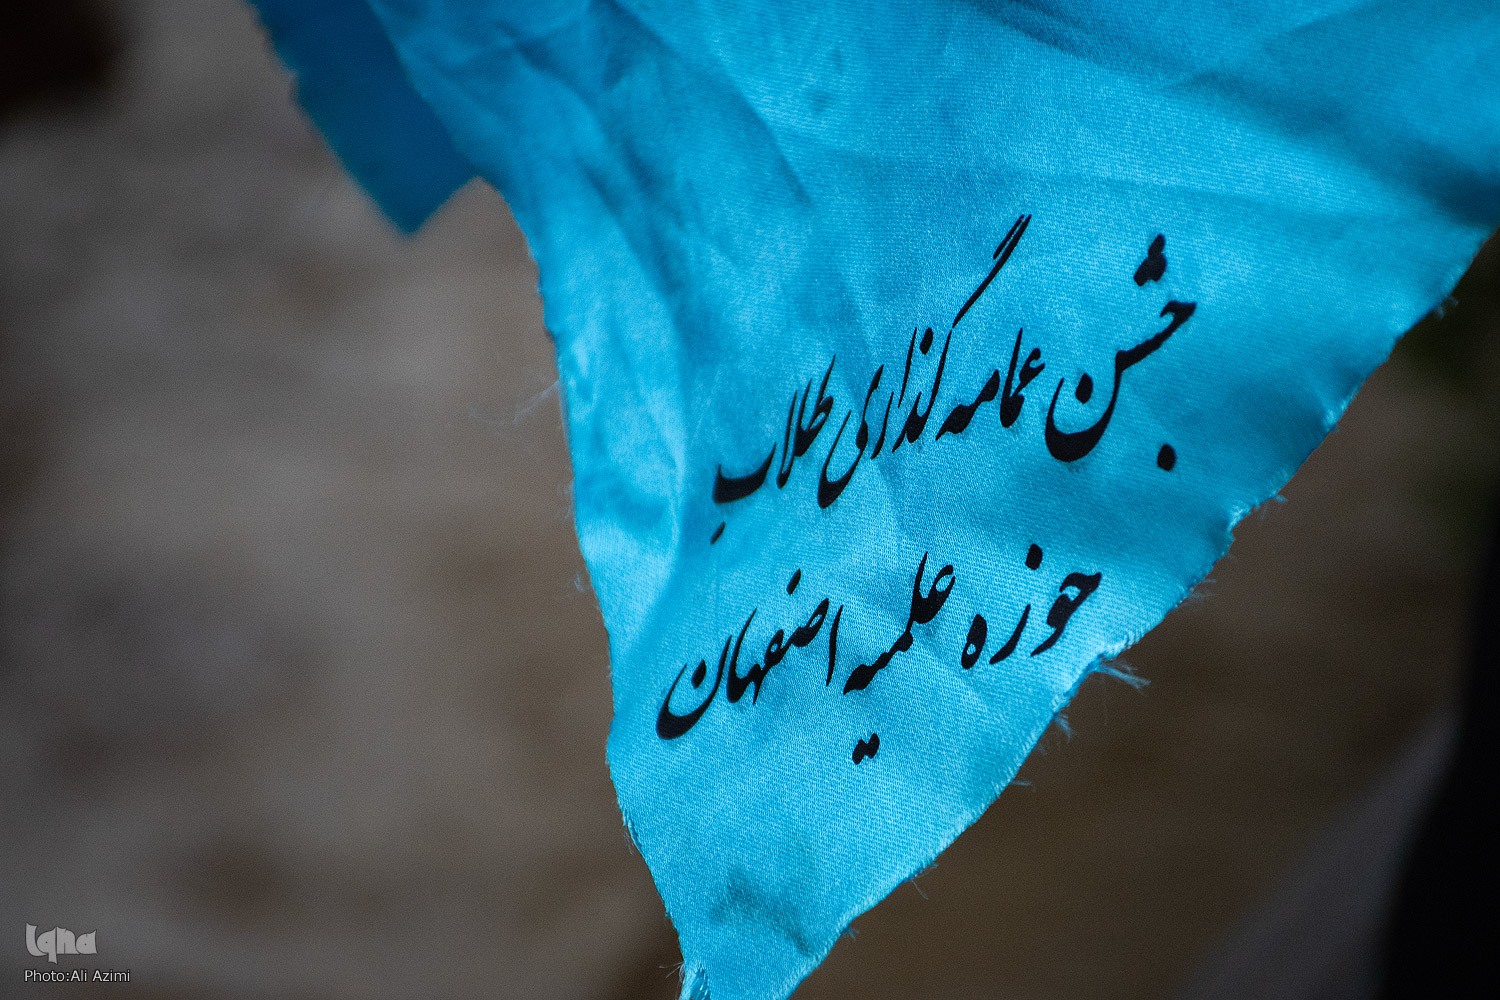 جشن عمامه گذاری طلاب
حوزه علمیه اصفهان
Iqna
Photo:Ali Azimi